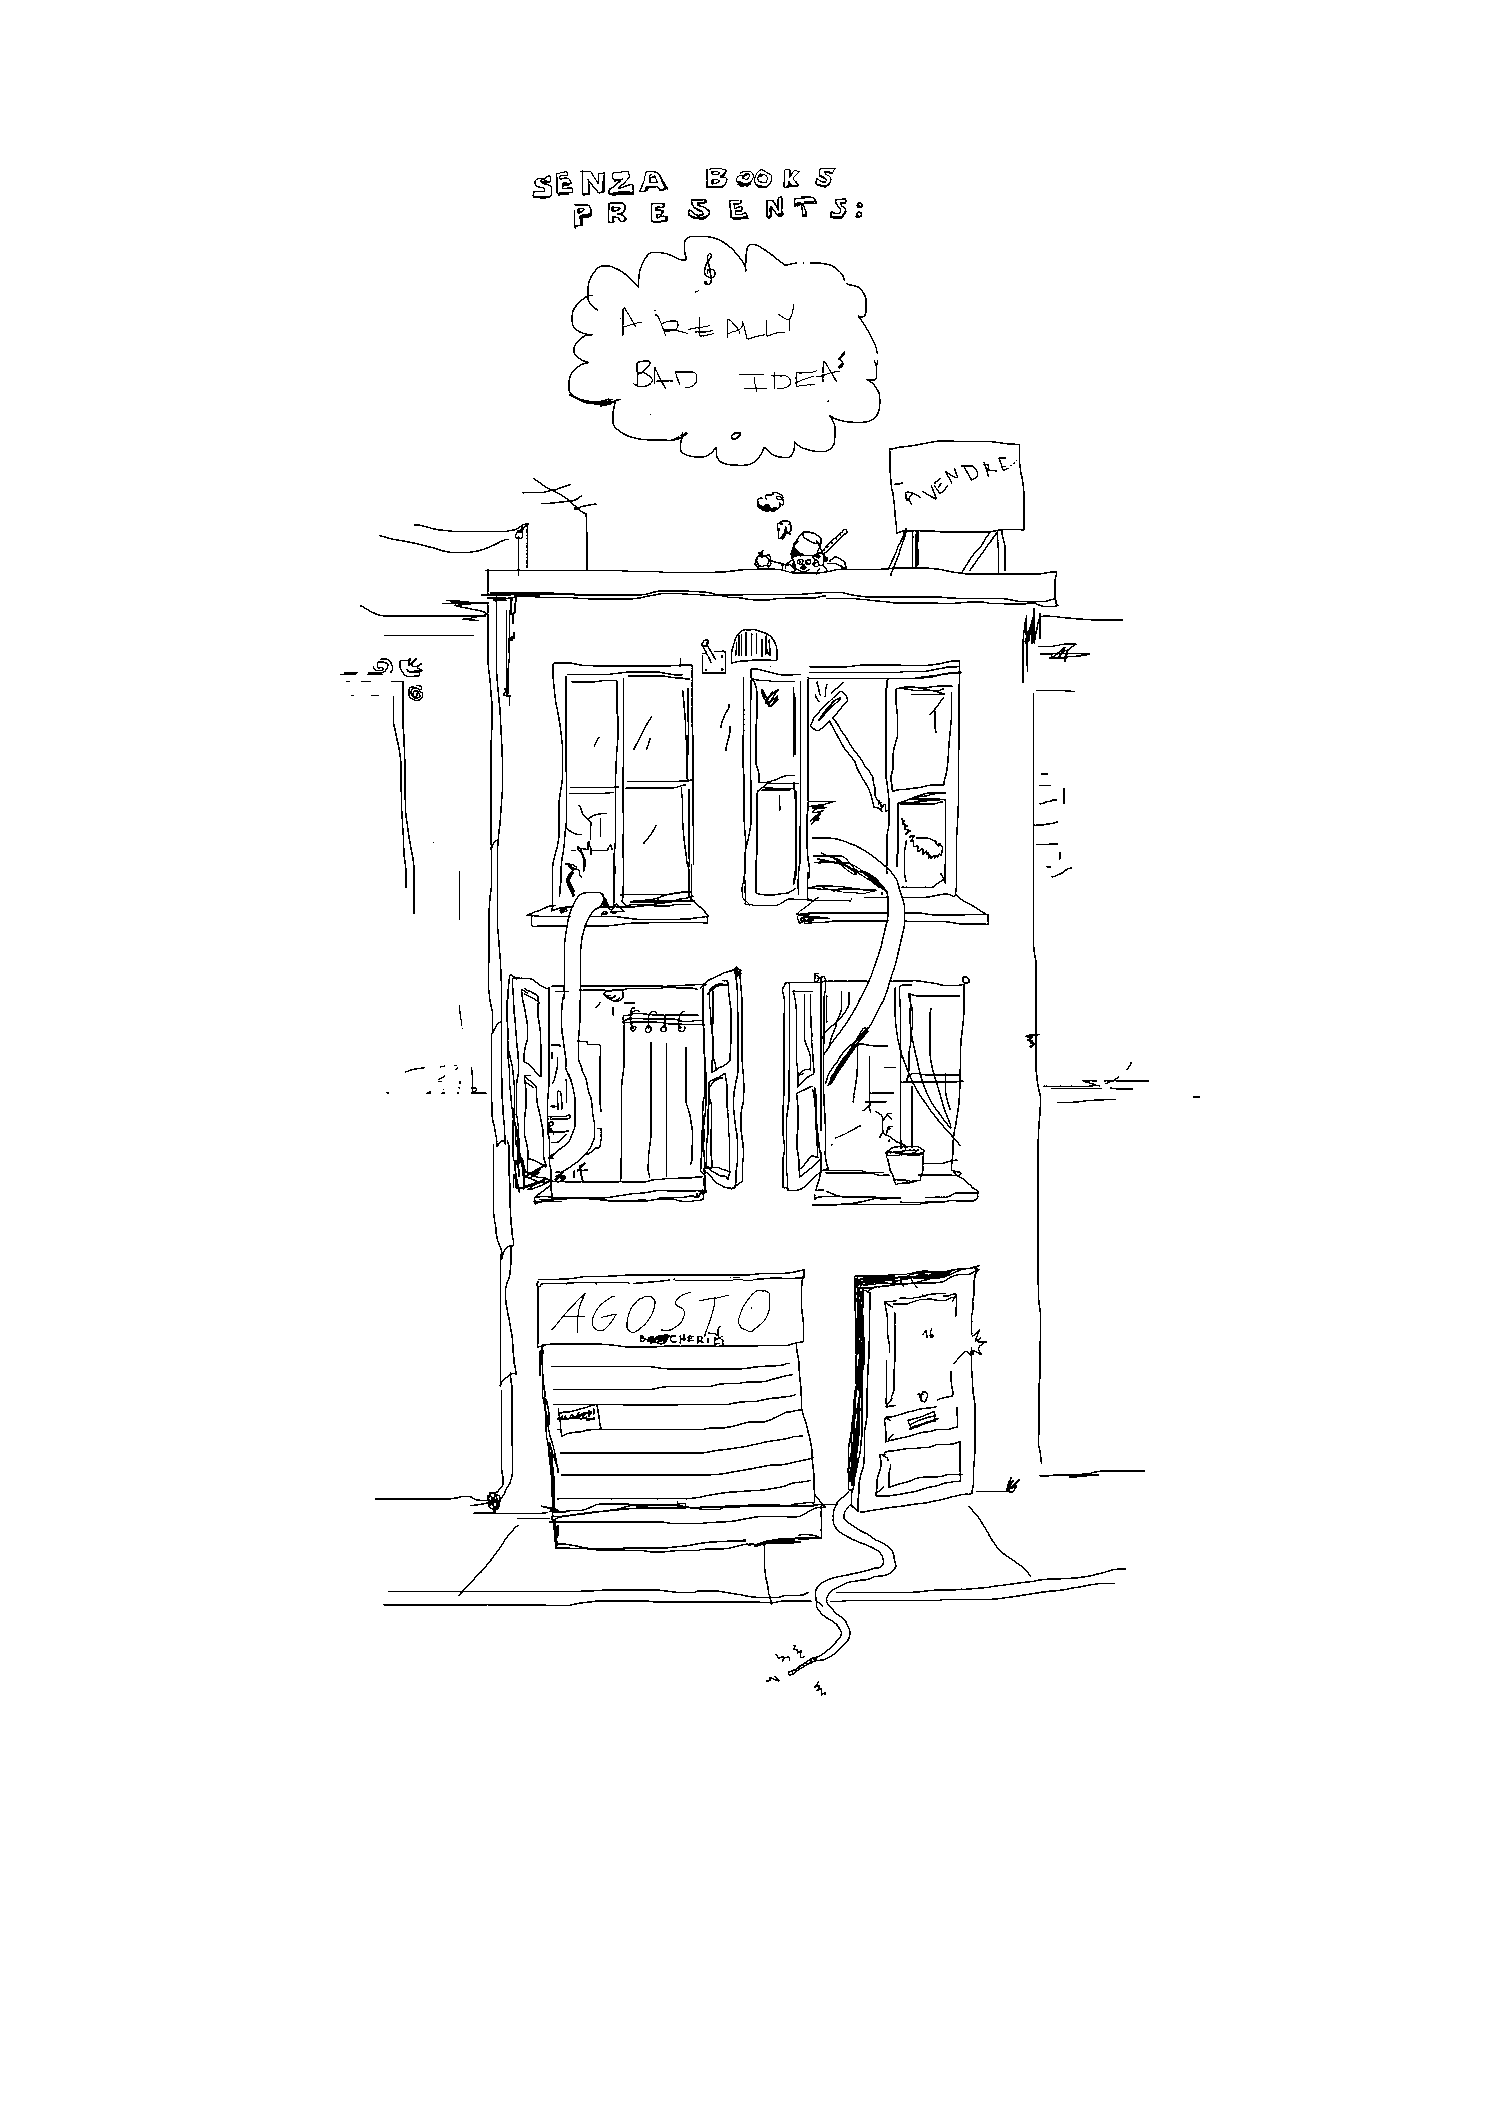 SENZA BOOKS
PRESENTS:
A REALLY
BAD IDEA
À VENDRE
AGOSTO
16